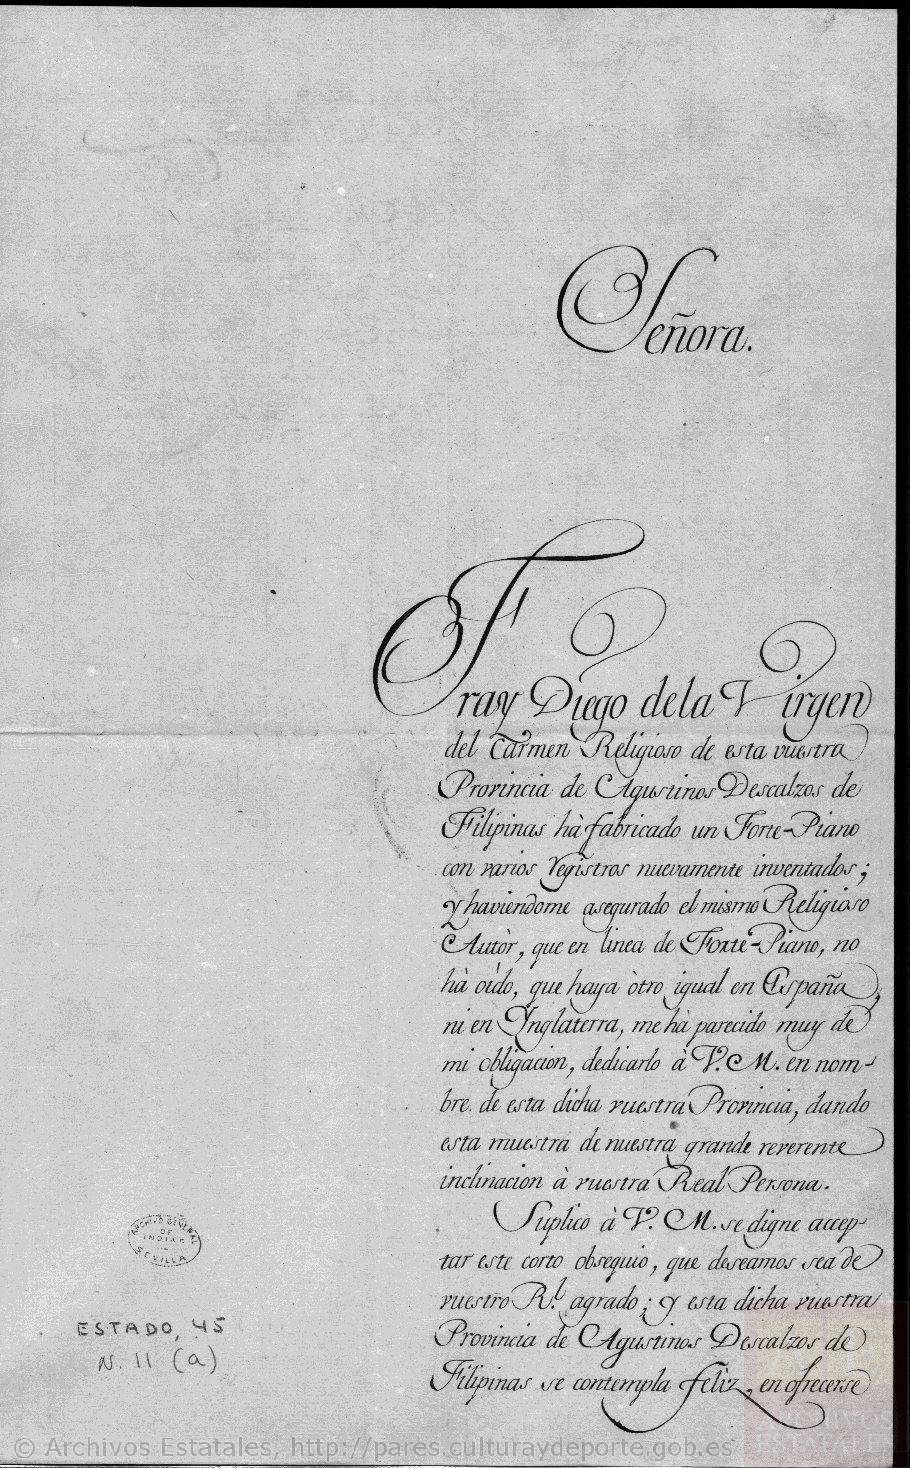 Señora.
Fray Diego dela Virgen
del Carmen Religioso de esta vuestra
Provincia de Agustinos Descalzos de
Filipinas hà fabricado un Forte-Piano
con varios registros nuevamente inventados;
y haviendome asegurado el mismo Religioso
Autòr, que en linea de Forte-Piano, no
hà oìdo, que haya òtro igual en España,
ni en Ynglaterra, me hà parecido muy de
mi obligacion, dedicarlo à V. M. en nom-
bre de esta dicha vuestra Provincia, dando
esta muestra de nuestra grande reverente
inclinacion à vuestra Real Persona.
Suplico à V. M. se digne accep-
tar este corto obsequio, que deseamos sea de
vuestro R.l agrado; y esta dicha vuestra
Provincia de Agustinos Descalzos de
Filipinas se contempla feliz, en ofrecerse
ARCHIVO GENERAL
DE
INDIAS
SEVILLA
ESTADO, 45
N. 11 (a)
ARCHIVOS
ESTATALES
© Archivos Estatales, http://pares.culturaydeporte.gob.es